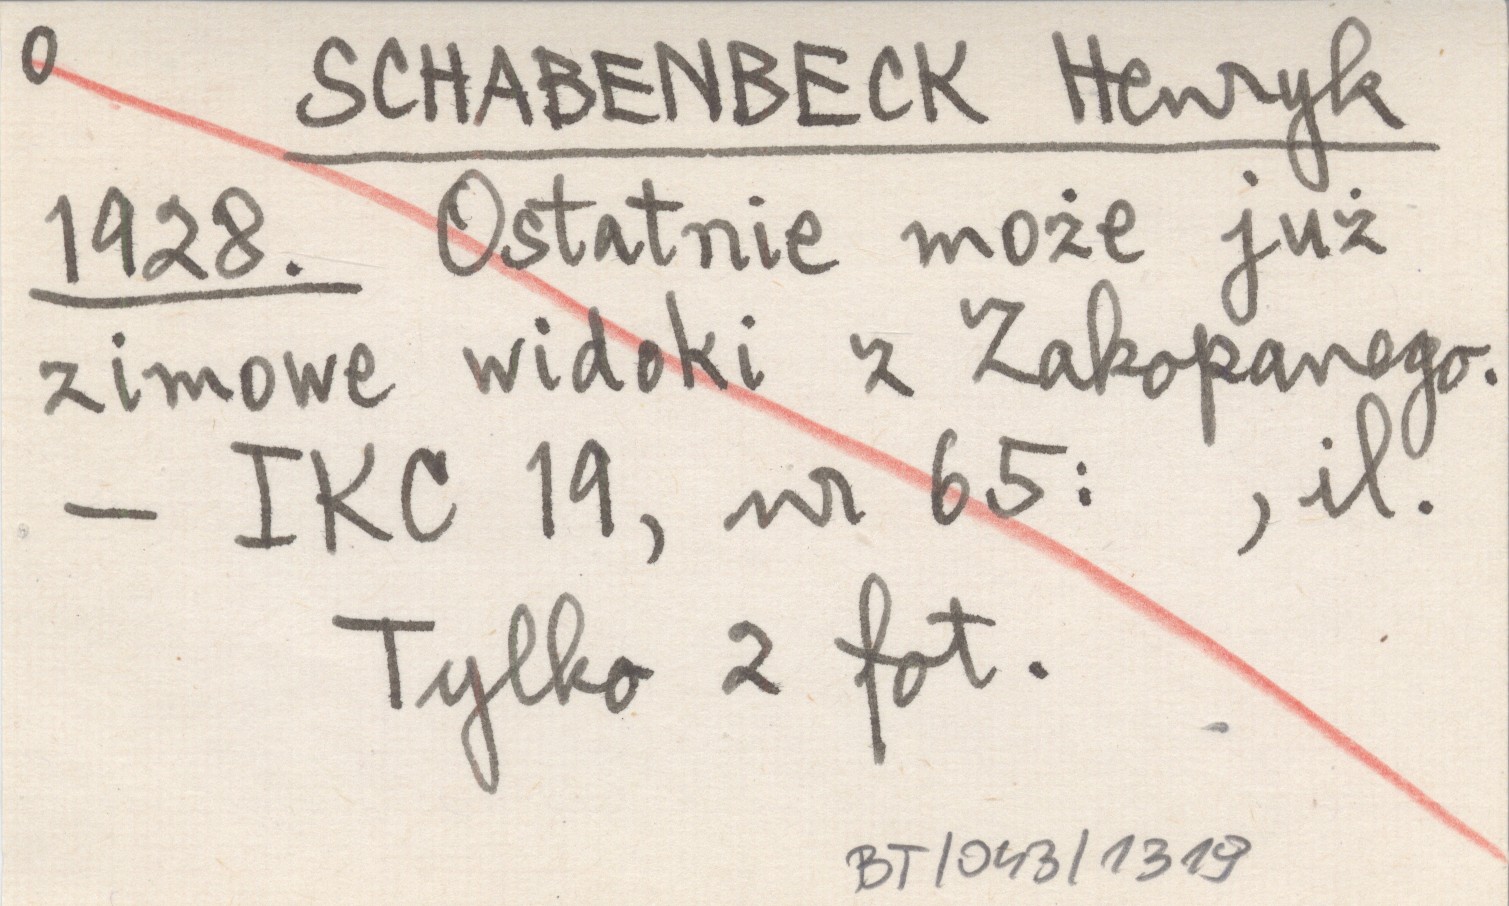 0 SCHABENBECK Henryk
1928. Ostatnie może już
zimowe widoki z Zakopanego.
- IKC 19, nr 65: , il.
Tylko 2 fot.
BT/043/1319